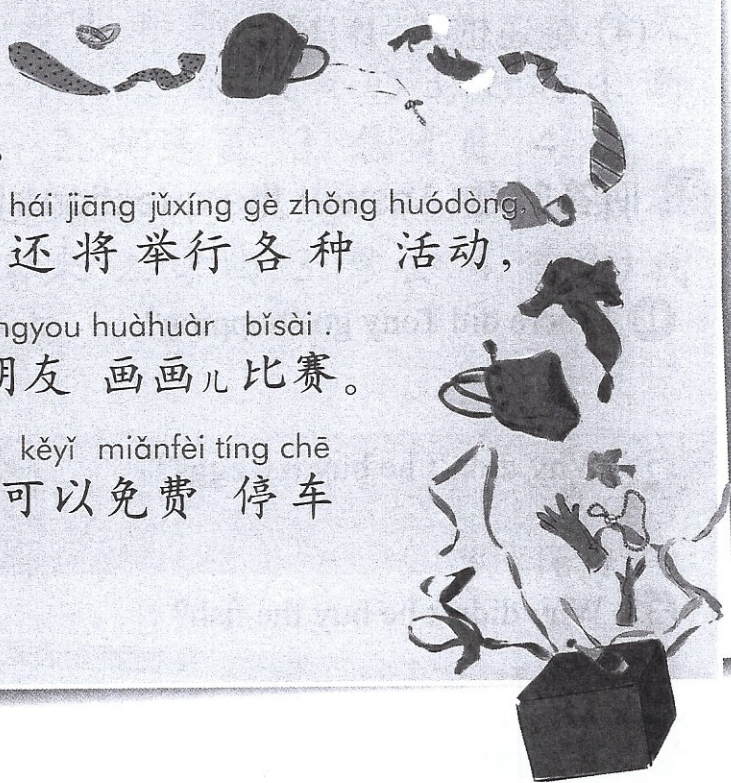 hái jiāng jǔxíng gè zhǒng huódòng,
还将举行各种 活动,
ngyou huàhuàr bǐsài .
朋友 画画儿比赛。
kěyǐ miǎnfèi tíng chē
可以免费 停车